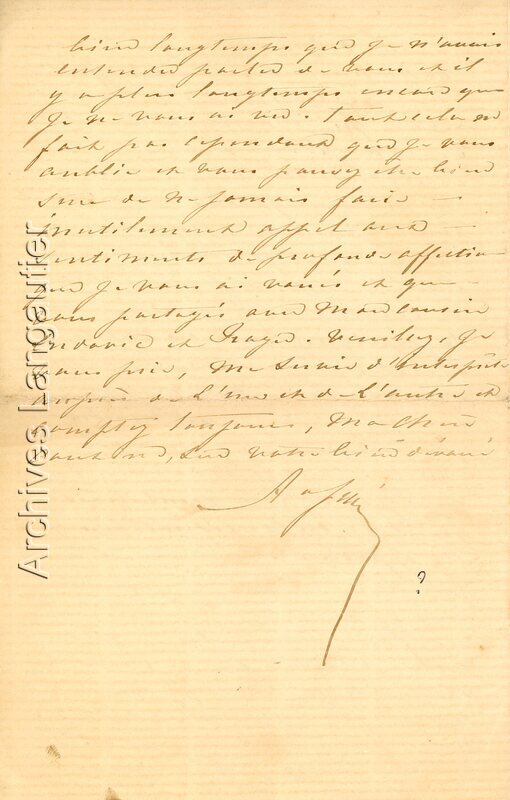 bien longtemps que je n'avais
entendu parler de vous et il
y a plus longtemps encore que
je ne vous ai vu. tout cela ne
fait pas cependant que je vous
oublie et vous pouvez être bien
sure de ne jamais faire
inutilement appel aux
sentiments de profonde affection
que je vous ai voués et que
vous partagez avec mon cousin
Ludovic et . Veuillez, je
vous prie, me servir d'interprète
auprès de l'une et de l'autre et
comptez toujours, ma chère
, sur votre bien dévoué
?
Archives Langautier